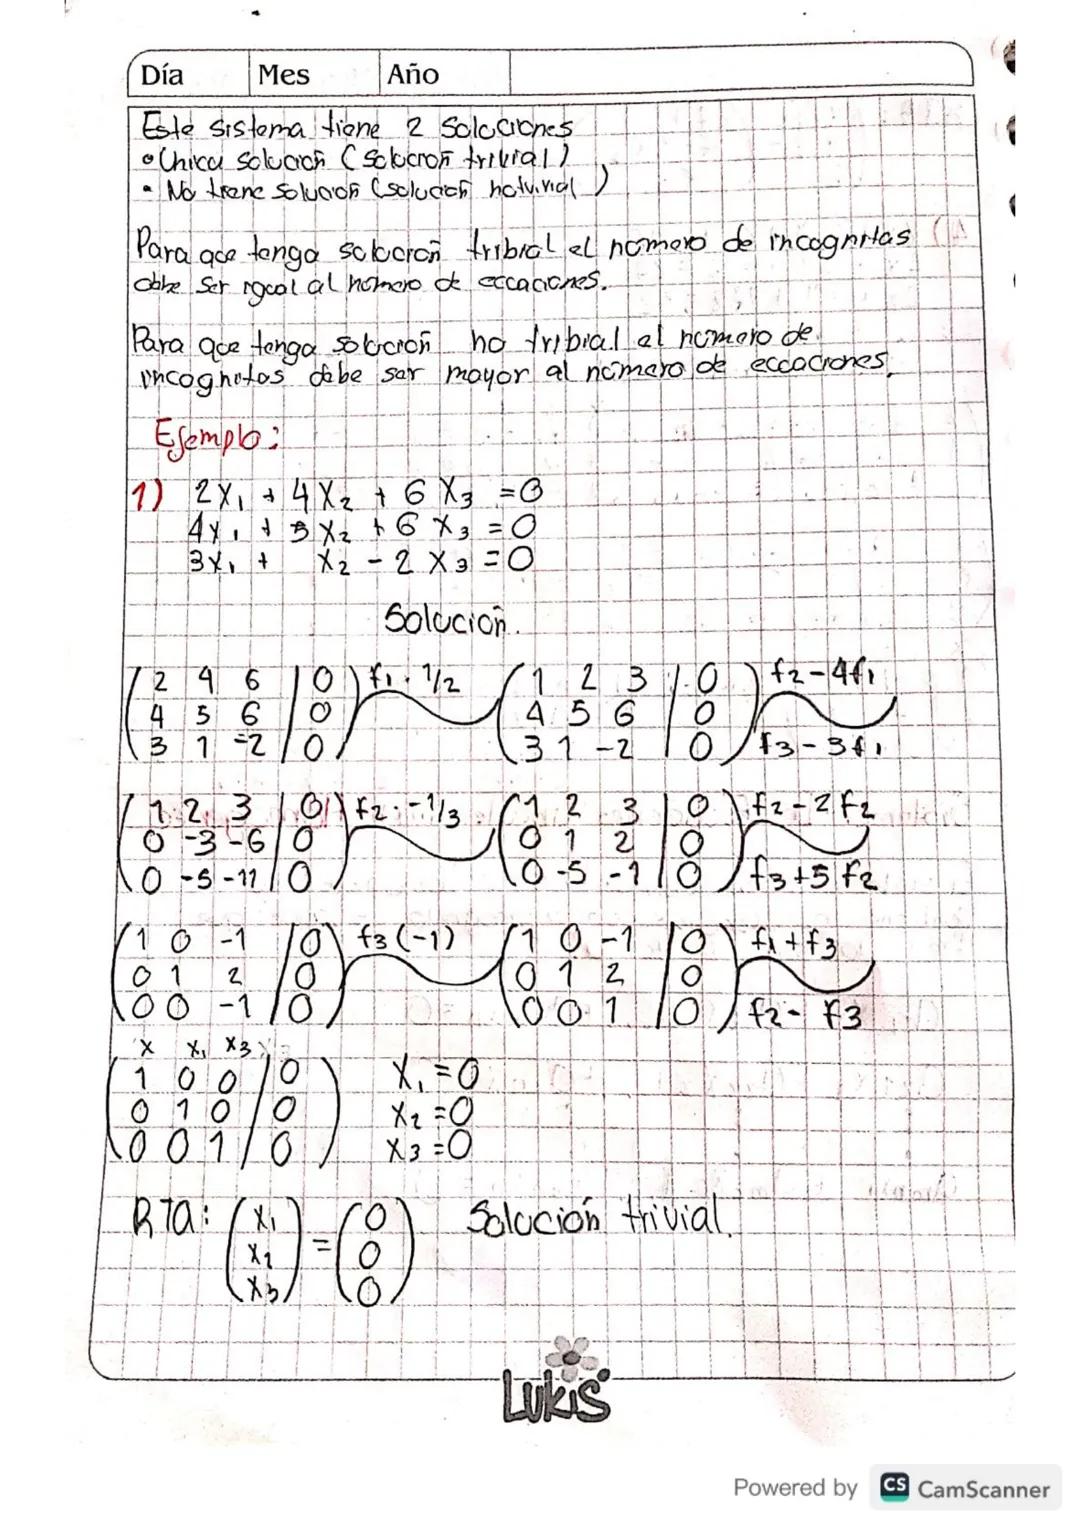 Día Mes Año
Este sistema tiene 2 Soluciones
• Unica solución (Solución trivial)
• No tiene solución (solución notvivial)
Para que tenga solución tribial el número de incognitas
debe Ser igual al número de eccaciones.
Para que tenga solución no tribial el número de
incognitas debe ser mayor al número de eccaciones.
Ejemplo:
1) 2X₁ + 4X₂ + 6X₃ = 0
4X₁ + 5X₂ + 6X₃ = 0
3X₁ + X₂ - 2X₃ = 0
Solución.
2 4 6 | 0 f₁ · 1/2 1 2 3 | 0 f₂-4f₁
4 5 6 | 0 4 5 6 | 0
3 1 -2 | 0 3 1 -2 | 0 f₃-3f₁
1 2 3 | 0 f₂ · -1/3 1 2 3 | 0 f₂-2f₂
0 -3 -6 | 0 0 1 2 | 0
0 -5 -11 | 0 0 -5 -1 | 0 f₃+5f₂
1 0 -1 | 0 f₃(-1) 1 0 -1 | 0 f₁+f₃
0 1 2 | 0 0 1 2 | 0
0 0 -1 | 0 0 0 1 | 0 f₂-f₃
X X₁ X₃
1 0 0 | 0 X₁=0
0 1 0 | 0 X₂=0
0 0 1 | 0 X₃=0
RTA: (X₁ X₂ X₃) = (0 0 0) Solución trivial.
Lukis
Powered by CS CamScanner